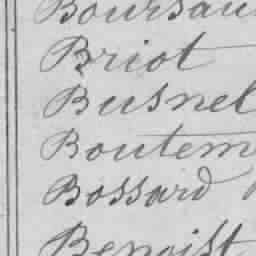 Boursau
Briot
Busnel
Boutem
Bossard
Benoist